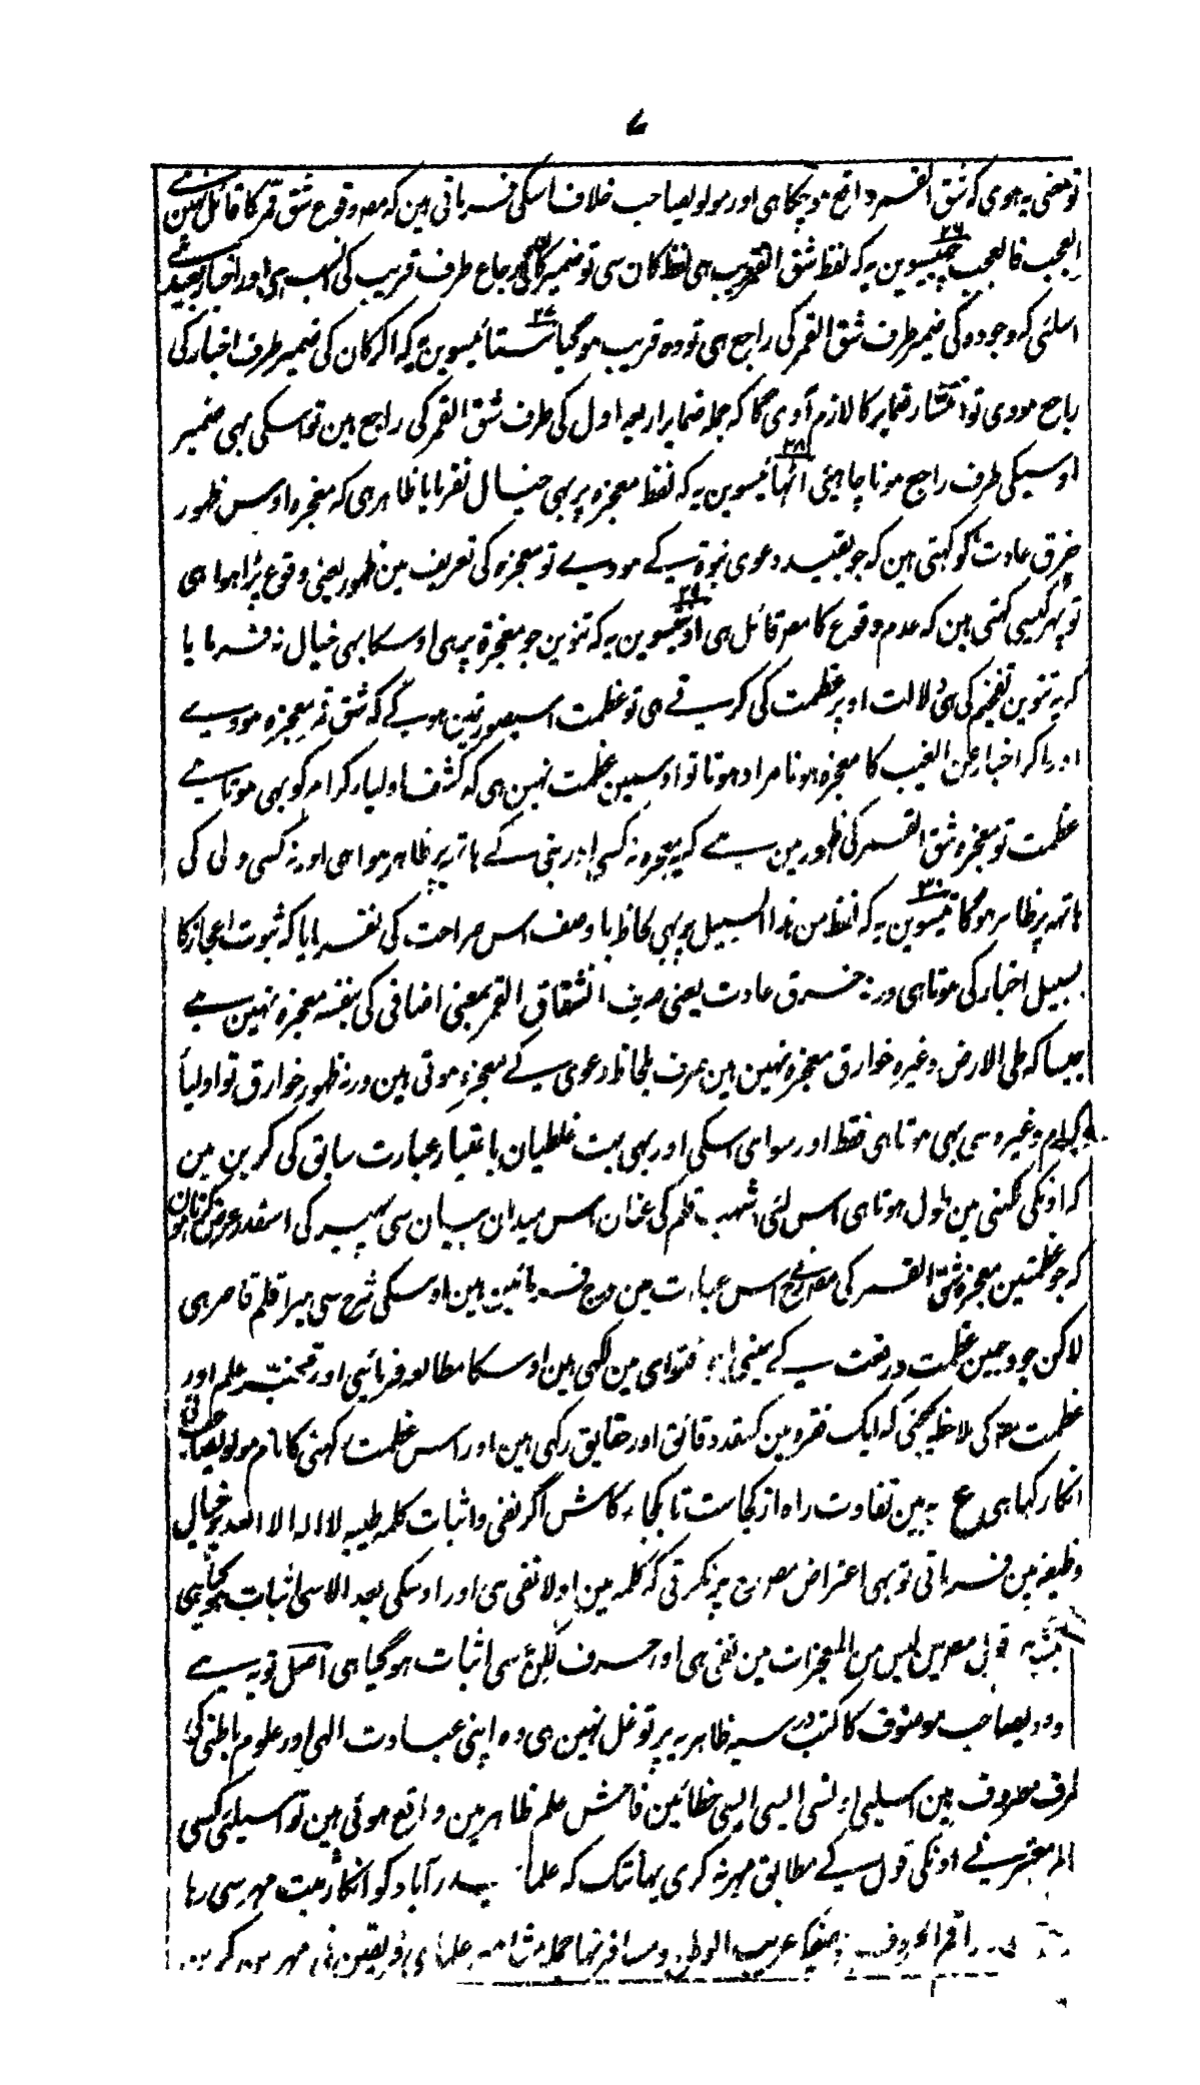 ۷
تو معنی یہ ہوی کہ شق القمر واقع ہو چکا ہی اور مولویصاحب خلاف اسکی فرماتی ہین کہ معہ وقوع شق قمر کا قائل نہین ہے
العجب فالعجب چھبیسوین ۲۶ یہ کہ لفظ شق القمر قریب ہی لفظ کان سی تو ضمیر کان کی ارجاع طرف قریب کی انسب ہی اور اخبار بعید ہے
اسلئی کہ وجودہ کی ضمیر طرف شق القمر کی راجع ہی تو وہ قریب ہو گیا ستائیسوین ۲۷ یہ کہ اگر کان کی ضمیر طرف اخبار کی
راجع ہووی تو انتشار ضمایر کا لازم آوی گا کہ جملہ ضمایر اول کی طرف شق القمر کی راجع ہین تو اسکی بہی ضمیر
اوسیکی طرف راجع ہونا چاہئی اٹھائیسوین ۲۸ یہ کہ لفظ معجزہ پر بہی خیال نفرمایا ظاہر ہی کہ معجزہ اوس ظہور
خرق عادت کو کہتی ہین کہ جو بقید دعوی نبوۃ کے ہووے تو معجزہ کی تعریف مین ظہور یعنی وقوع پڑا ہوا ہی
تو پہر کیسی کہتی ہین کہ عدم وقوع کا معہ قائل ہی اونتیسوین ۲۹ یہ کہ تنوین جو معجزۃ پر ہی اوسکا بہی خیال نہ فرمایا
کہ یہ تنوین تفخیم کی ہی دلالت اوپر عظمت کی کرتے ہی تو عظمت اسیصورتمین ہوگے کہ شق قمر معجزہ ہووے
اور اگر اخبار عن الغیب کا معجزہ ہونا مراد ہوتا تو اوسمین عظمت نہین ہی کہ کشف اولیار کرام کو بہی ہوتا ہے
عظمت تو معجزہ شق القمر کی ظہور مین ہے کہ یہ معجزہ نہ کسی اور نبی کے ہاتہ پر ظاہر ہوا ہی اور نہ کسی ولی کی
ہاتہہ پر ظاہر ہوگا تیسوین ۳۰ یہ کہ لفظ من ہذا السبیل پر بہی لحاظ باوصف اس صراحت کی نفرمایا کہ ثبوت اعجاز کا
بسبیل اخبار کی ہوتا ہی ورنہ خرق عادت یعنی صرف انشقاق القمر بمعنی اضافی کی بنفسہ معجزہ نہین ہے
جیسا کہ طی الارض وغیرہ خوارق معجزہ نہین ہین صرف بلحاظ دعوی کے معجزہ ہوتی ہین ورنہ ظہور خوارق تو اولیأ
کرام وغیرہ سی بہی ہوتا ہی فقط اور سوای اسکی اور بہی بہت غلطیان باعتبار عبارت سابق کی کرین ہین
کہ اونکی لکہنی مین طول ہوتا ہی اس لئی اشہب قلم کی عنان اس میدان بیان سی پہیر کی اسقدر عرض کرتا ہون
کہ جو عظمتین معجزہ شق القمر کی اس عبارت مین درج فرمائین ہین اوسکی شرح سی میرا قلم قاصر ہی
لاکن جو وجہین عظمت و رفعت کے مینی فتوای مین لکہی ہین اوسکا مطالعہ فرمائیی اور علم اور
عظمت کی ملاحظہ کیجئی کہ ایک فقرہ مین کسقدر دقائق اور حقایق رکہی ہین اور اس عظمت کہنی کا نام مولویصاحب نی
انکار رکہا ہی ع بہ بین تفاوت راہ از کجاست تا بکجا ۔ کاش اگر نفی و اثبات کلمہ طیبہ لا الہ الا اللہ پر خیال
وظیفہ مین فرماتی تو بہی اعتراض پر نکرتی کہ کلمہ مین اولا نفی ہی اور اوسکی بعد الا سی اثبات
قول مین لیس من المعجزات مین نفی ہی اور حرف لکن سی اثبات ہو گیا ہی اصل تو یہ ہے
مولویصاحب موصوف کا کتب درسیہ ظاہریہ پر توغل نہین ہی وہ اپنی عبادت الہی اور علوم باطنی کی
طرف مصروف ہین اسلیی اونسی ایسی ایسی خطائین فاحش علم ظاہر مین واقع ہوئی ہین تو اسیلئی کسی
معتبر نے اونکی قول کے مطابق مہر نہ کری یہانتک کہ علما حیدرآباد کو انکار ثبت مہر سی رہا
راقم الحروف غریب الوطن و مسافر علمای فریقین نی مہرین کرین